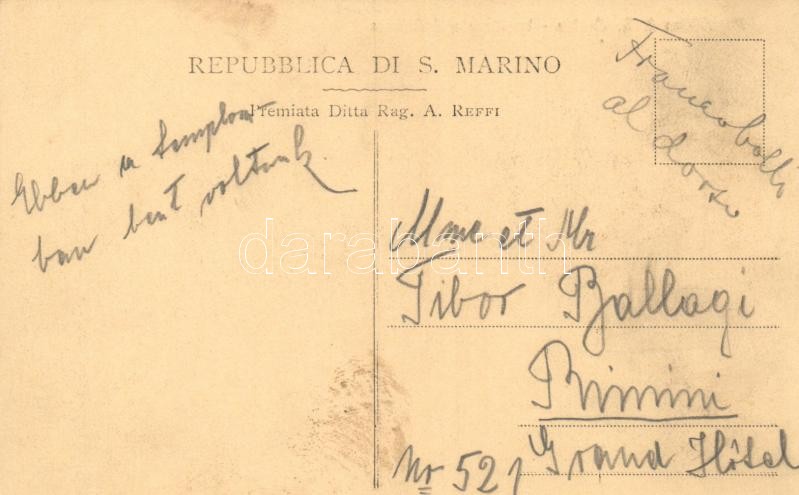 REPUBBLICA DI S. MARINO
Premiata Ditta Rag. A. REFFI
Francobollo
al dorso
Ebben a templom-
ban bent voltunk.
Mme et Mr
Tibor Ballagi
Rimini
Grand Hôtel
No 521
darabanth